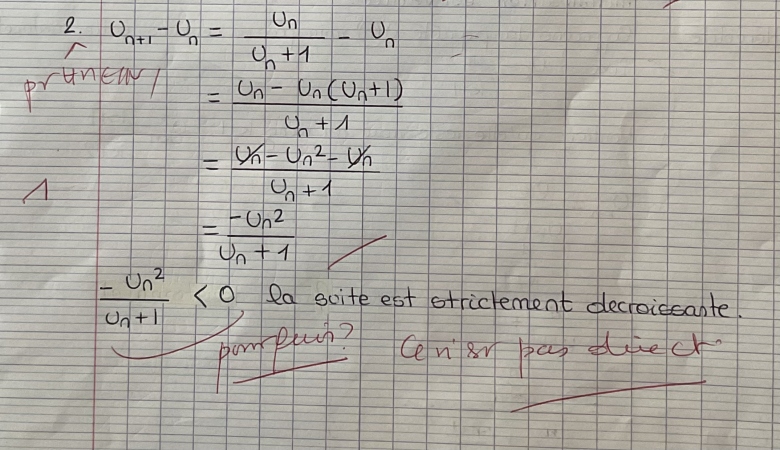 2. Un+1 - Un = Un / Un + 1 - Un
pr ∀n∈ℕ,
= Un - Un (Un+1) / Un + 1
= Un - Un² - Un / Un + 1
1
= -Un² / Un + 1
- Un² / Un+1 < 0 la suite est strictement decroissante.
pourquoi? Ce n'est pas direct